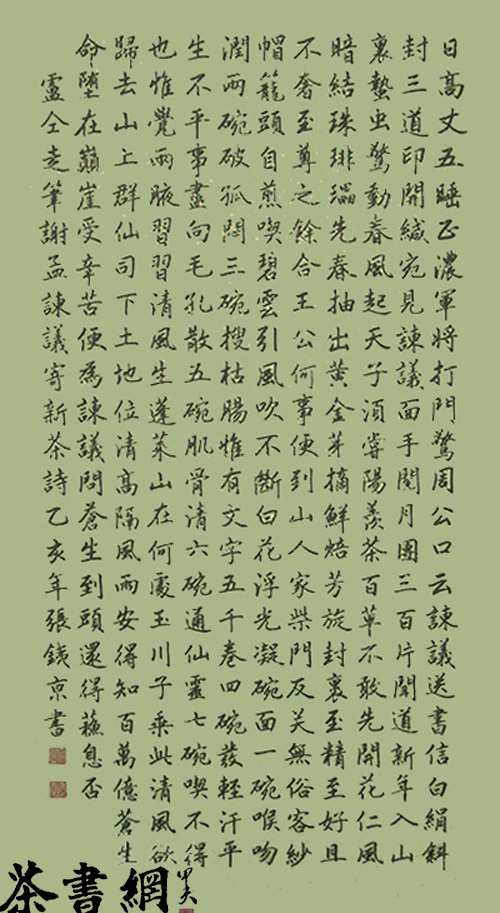 日高丈五睡正濃軍將打門驚周公口云諫議送書信白絹斜
封三道印開緘宛見諫議面手閱月團三百片聞道新年入山
裏蟄虫驚動春風起天子須嘗陽羨茶百草不敢先開花仁風
暗結珠琲瓃先春抽出黃金芽摘鮮焙芳旋封裹至精至好且
不奢至尊之餘合王公何事便到山人家柴門反关無俗客紗
帽籠頭自煎喫碧雲引風吹不斷白花浮光凝碗面一碗喉吻
潤兩碗破孤悶三碗搜枯腸惟有文字五千卷四碗發輕汗平
生不平事盡向毛孔散五碗肌骨清六碗通仙靈七碗喫不得
也惟覺兩腋習習清風生蓬萊山在何處玉川子乘此清風欲
歸去山上群仙司下土地位清高隔風雨安得知百萬億蒼生
命墮在巔崖受辛苦便為諫議問蒼生到頭還得蘇息否
盧仝走筆謝孟諫議寄新茶詩乙亥年張銕京書
茶書網